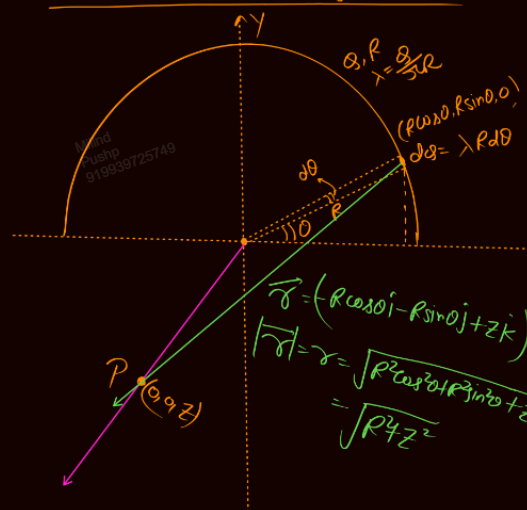 Y
Q, R
λ = Q/πR
(Rcosθ, Rsinθ, 0)
dq = λRdθ
Milind
Pushp
919939725749
dθ
R
θ
r⃗ = (-Rcosθî - Rsinθĵ + zk̂)
|r⃗| = r = √R²cos²θ+R²sin²θ+z
= √R²+z²
P
(0,0,z)